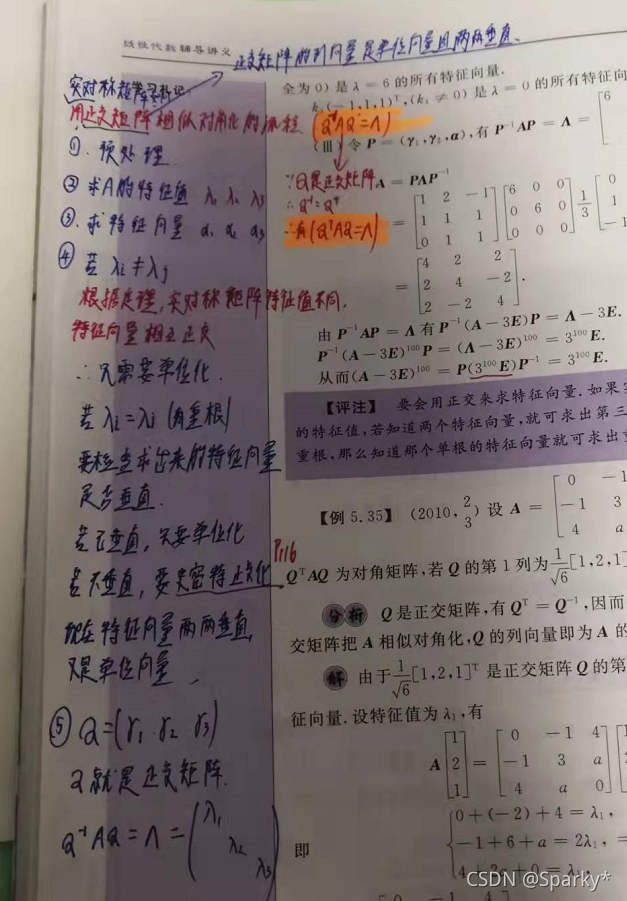 线性代数辅导讲义
正交矩阵的列向量是单位向量且两两垂直.
实对称矩阵
用正交矩阵相似对角化的流程. (Q⁻¹AQ=Λ)
①. 预处理
② 求A的特征值 λ₁ λ₂ λ₃
③. 求特征向量 α₁ α₂ α₃
④ 若 λi ≠ λj
根据定理,实对称矩阵特征值不同,
特征向量相互正交
∴只需要单位化.
若 λi = λj (有重根)
要检查求出来的特征向量
是否垂直.
若已垂直,只要单位化
若不垂直,要史密特正交化 P116
现在特征向量两两垂直,
又是单位向量,
⑤ Q = (γ₁ γ₂ γ₃)
Q就是正交矩阵.
Q⁻¹AQ = Λ = (λ₁ λ₂ λ₃)
∵Q是正交矩阵
∴ Q⁻¹=Qᵀ
∴有(QᵀAQ=Λ)
全为 0) 是 λ = 6 的所有特征向量.
k₁(-1,1,1)ᵀ,(k₁ ≠ 0) 是 λ = 0 的所有特征向
(Ⅲ) 令 P = (γ₁,γ₂,α),有 P⁻¹AP = Λ = [6
A = PΛP⁻¹
= [1 2 -1 [6 0 0 1/3 [0
1 1 1 0 6 0 1
0 1 1] 0 0 0] -1
= [4 2 2
2 4 -2
2 -2 4].
由 P⁻¹AP = Λ 有 P⁻¹(A - 3E)P = Λ - 3E.
P⁻¹(A - 3E)¹⁰⁰P = (Λ - 3E)¹⁰⁰ = 3¹⁰⁰E.
从而(A - 3E)¹⁰⁰ = P(3¹⁰⁰E)P⁻¹ = 3¹⁰⁰E.
【评注】 要会用正交来求特征向量. 如果
的特征值,若知道两个特征向量,就可求出第三
重根,那么知道那个单根的特征向量就可求出
【例 5.35】 (2010, 2/3) 设 A = [0 -1
-1 3
4 a
QᵀAQ 为对角矩阵,若 Q 的第 1 列为 1/√6 [1,2,1]
分析 Q 是正交矩阵,有 Qᵀ = Q⁻¹,因而
交矩阵把 A 相似对角化,Q 的列向量即为 A 的
解 由于 1/√6 [1,2,1]ᵀ 是正交矩阵 Q 的第
征向量. 设特征值为 λ₁,有
A [1 = [0 -1 4
2 -1 3 a
1] 4 a 0]
即 {0 + (-2) + 4 = λ₁,
-1 + 6 + a = 2λ₁,
4 + 2a + 0 = λ₁,
CSDN @Sparky*